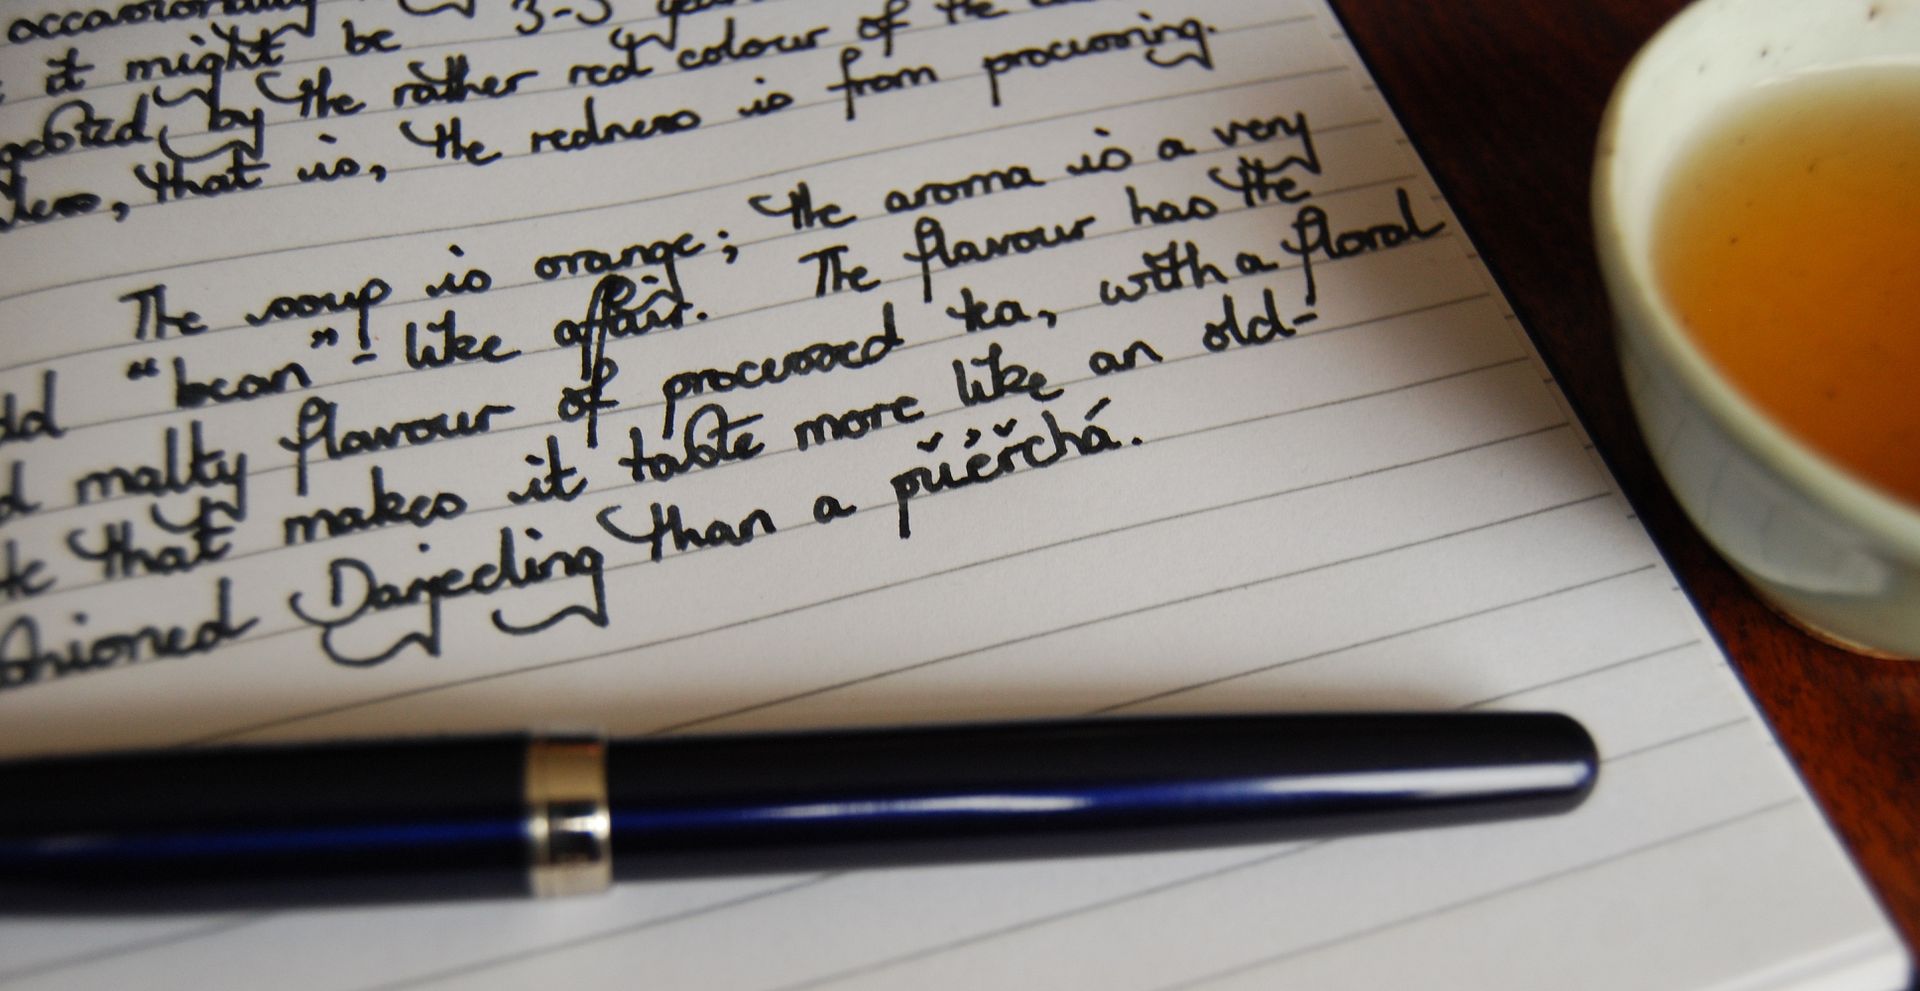 accasionally
it might be 3-5
by the rather red colour of the
that is, the redness is from processing.
The soup is orange; the aroma is a very
"bean"!-like affair. The flavour has the
malty flavour of processed tea, with a floral
that makes it taste more like an old-
Darjeeling than a pǔěrchá.